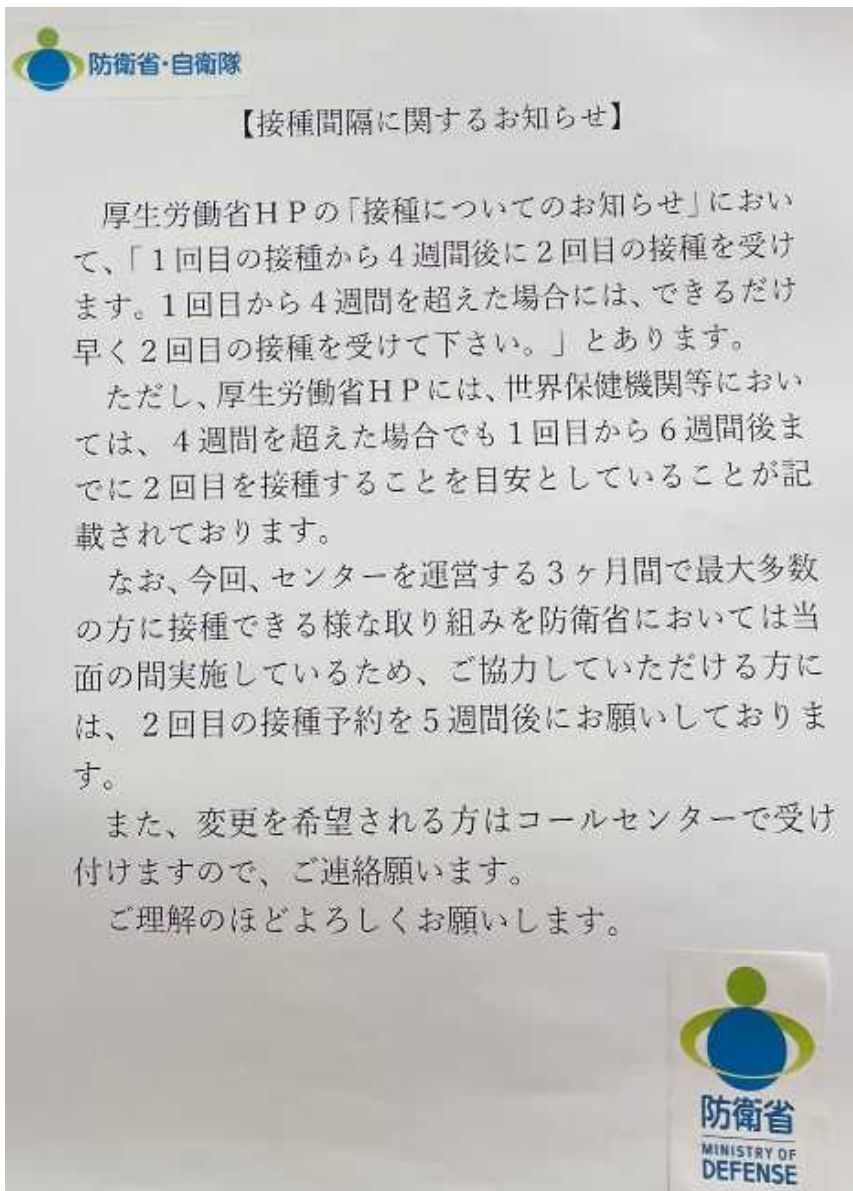 防衛省・自衛隊
【接種間隔に関するお知らせ】
厚生労働省ＨＰの「接種についてのお知らせ」におい
て、「１回目の接種から４週間後に２回目の接種を受け
ます。１回目から４週間を超えた場合には、できるだけ
早く２回目の接種を受けて下さい。」とあります。
ただし、厚生労働省ＨＰには、世界保健機関等におい
ては、４週間を超えた場合でも１回目から６週間後ま
でに２回目を接種することを目安としていることが記
載されております。
なお、今回、センターを運営する３ヶ月間で最大多数
の方に接種できる様な取り組みを防衛省においては当
面の間実施しているため、ご協力していただける方に
は、２回目の接種予約を５週間後にお願いしておりま
す。
また、変更を希望される方はコールセンターで受け
付けますので、ご連絡願います。
ご理解のほどよろしくお願いします。
防衛省
MINISTRY OF
DEFENSE